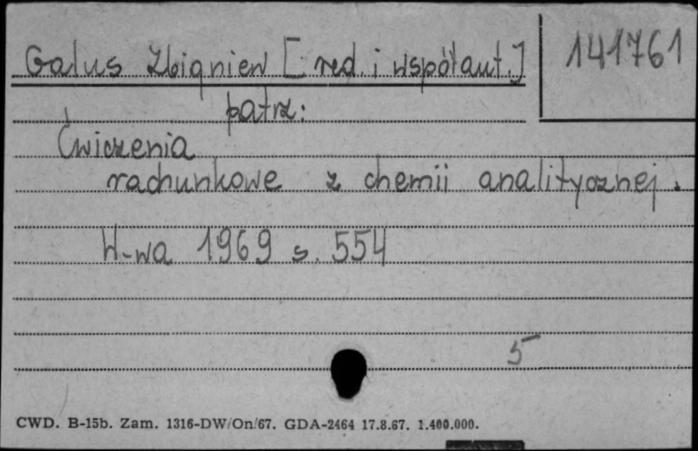 Galus Zbigniew [red. i współaut.]
141761
patrz:
Ćwiczenia
rachunkowe z chemii analitycznej.
W-wa 1969 s. 554
5
CWD. B-15b. Zam. 1316-DW/On/67. GDA-2464 17.8.67. 1.400.000.